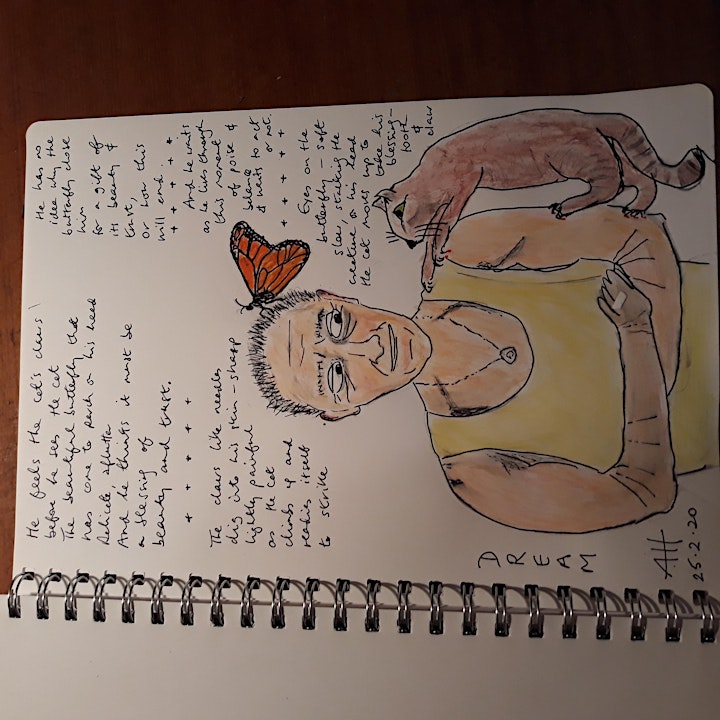 He feels the cat's claws
before he sees the cat
The beautiful butterfly that
has come to perch on his head
delicate aflutter
And he thinks it must be
a blessing of
beauty and trust.
+ + + + + +
The claws like needles
dig into his skin – sharp
lightly painful
as the cat
climbs up and
readies itself
to strike
He has no
idea why the
butterfly chose
him
for a gift of
its beauty &
trust,
or how this
will end.
+ + + + + +
And he waits
as he lives through
this moment
of poise &
balance
& waits to act
or not.
+ + + + + +
Eyes on the
butterfly – soft
slow, stalking the
creature on his head
the cat moves up to
take his
blessing –
tooth
&
claw
DREAM
AH
25.2.20